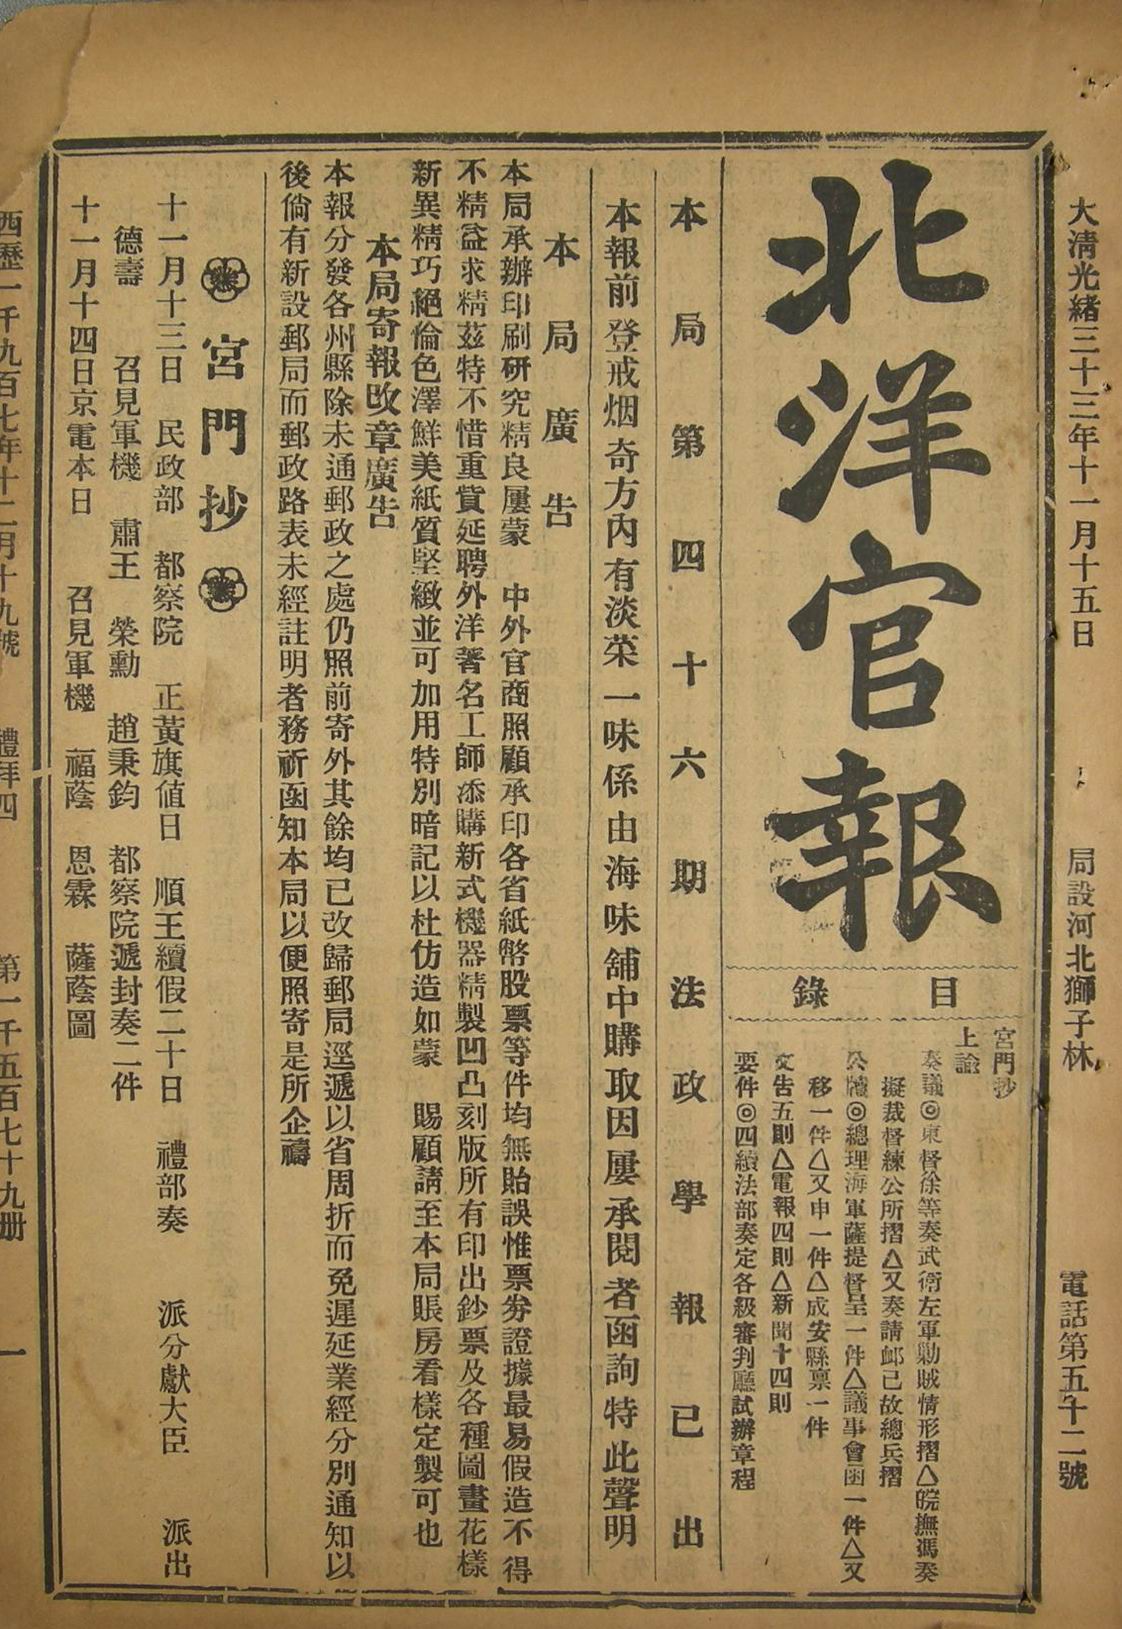 大清光緒三十三年十一月十五日 局設河北獅子林 電話第五十二號
北洋官報
目錄
宮門抄
上諭
奏議◎東督徐等奏武衛左軍勦賊情形摺△皖撫馮奏
擬裁督練公所摺△又奏請卹已故總兵摺
公牘◎總理海軍薩提督呈一件△議事會函一件△又
移一件△又申一件△成安縣禀一件
文告五則△電報四則△新聞十四則
要件◎四續法部奏定各級審判廳試辦章程
本局第四十六期法政學報已出
本報前登戒烟奇方內有淡菜一味係由海味舖中購取因屢承閱者函詢特此聲明
本局廣告
本局承辦印刷研究精良屢蒙 中外官商照顧承印各省紙幣股票等件均無貽誤惟票劵證據最易假造不得
不精益求精茲特不惜重貲延聘外洋著名工師添購新式機器精製凹凸刻版所有印出鈔票及各種圖畫花樣
新異精巧絕倫色澤鮮美紙質堅緻並可加用特別暗記以杜仿造如蒙 賜顧請至本局賬房看樣定製可也
本局寄報改章廣告
本報分發各州縣除未通郵政之處仍照前寄外其餘均已改歸郵局逕遞以省周折而免遲延業經分別通知以
後倘有新設郵局而郵政路表未經註明者務祈函知本局以便照寄是所企禱
宮門抄
十一月十三日 民政部 都察院 正黃旗值日 順王續假二十日 禮部奏 派分獻大臣 派出
德壽 召見軍機 肅王 榮勳 趙秉鈞 都察院遞封奏二件
十一月十四日京電本日 召見軍機 福蔭 恩霖 薩蔭圖
西歷一千九百七年十二月十九號 禮拜四 第一千五百七十九册 一